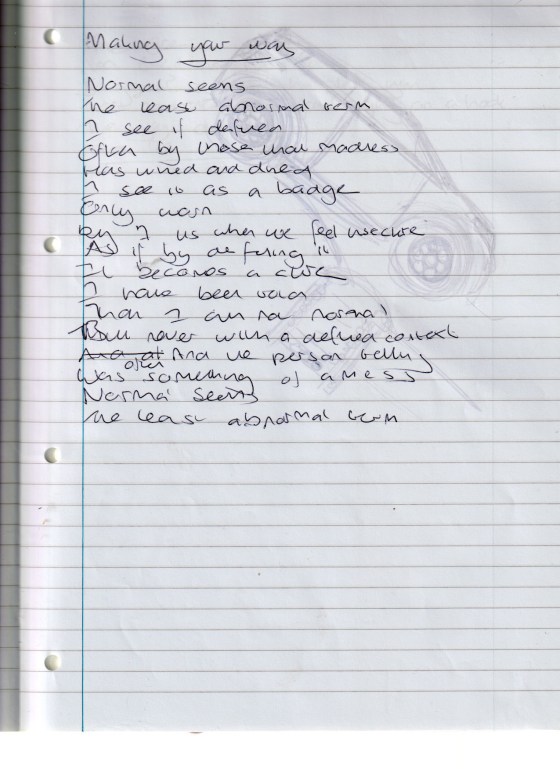 Making your way
Normal seems
The least abnormal term
I see it defined
Often by those that madness
Has wined and dined
I see it as a badge
Only worn
By us when we feel insecure
As if by defining it
It becomes a cure
I have been told
That I am not normal
But never with a defined context
And the person telling
often
Was something of a mess
Normal seems
The least abnormal term